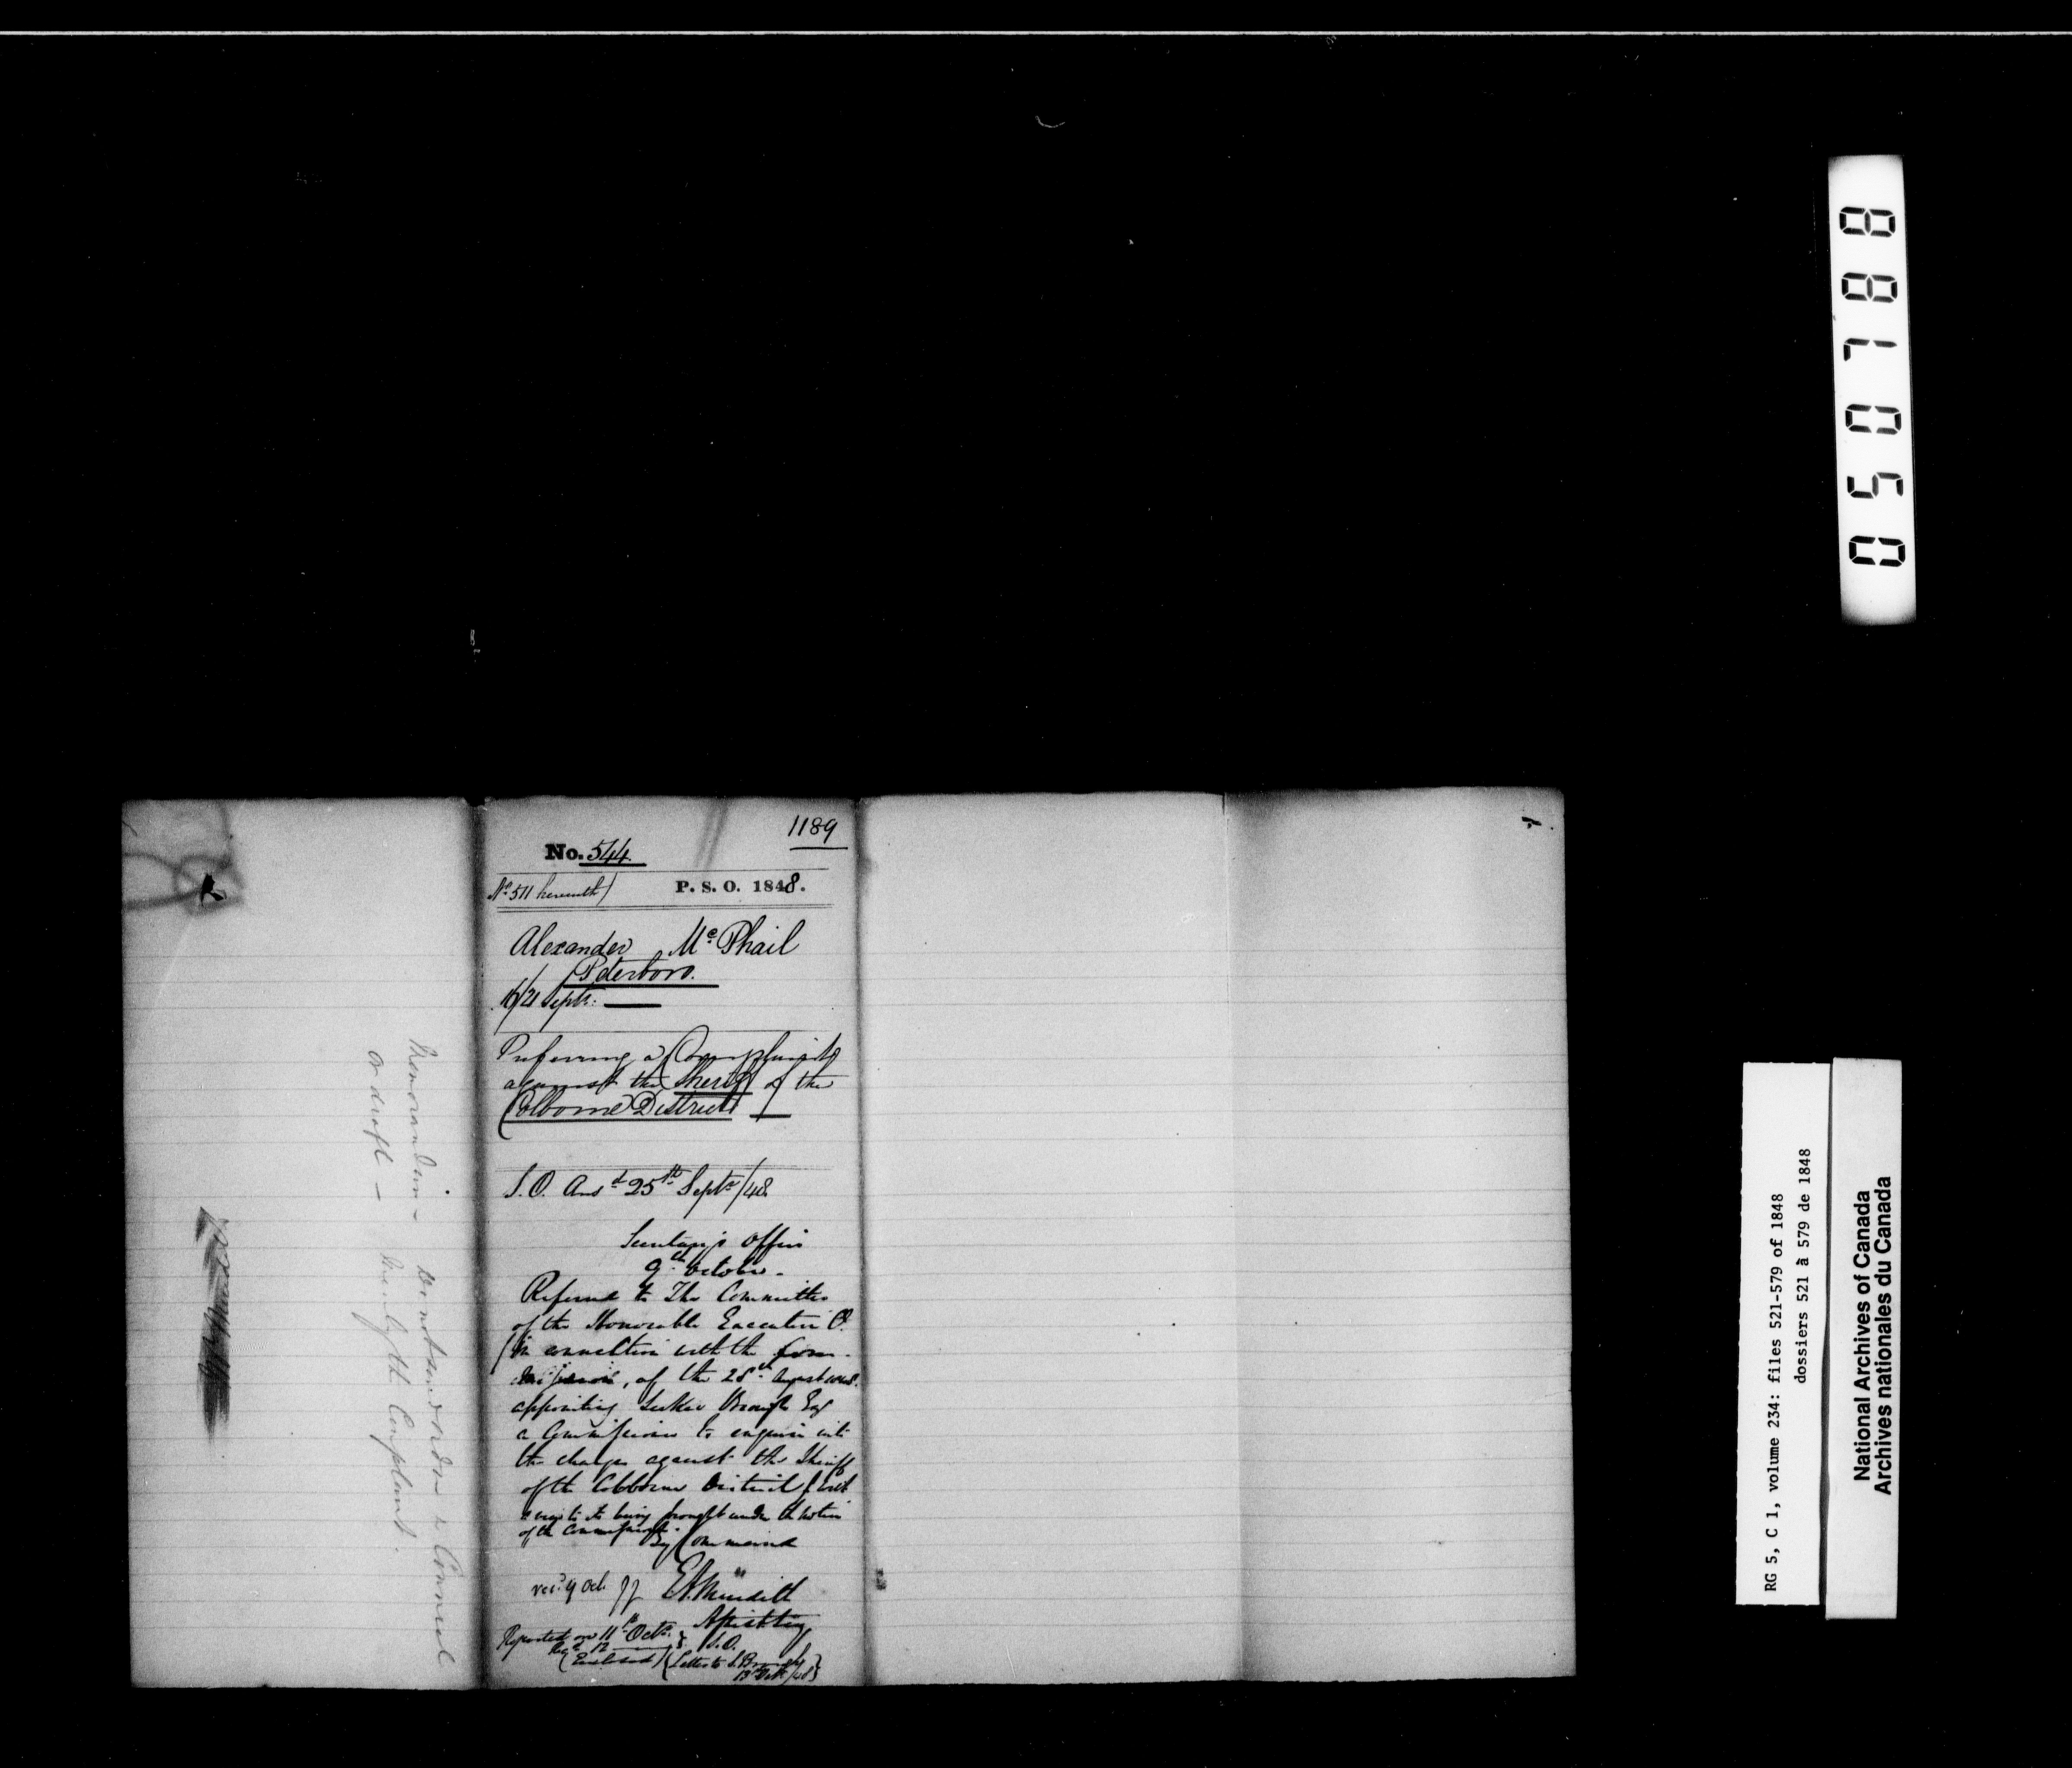 1189
No. 544
No. 511 herewith / P. S. O. 1848.
Alexander Mc Phail
Peterboro.
16/21 Septr.
Preferring a Complaint
against the Sheriff of the
Colborne District
S. O. Ansd 25th Septr /48
Secretary's Office
9th October
Referred to The Committee
of the Honorable Executive C.
(in connection with the Com-
mission, of the 28th August 1848.
appointing Secker Brough Esq
a Commissioner to enquire into
the charges against the Sheriff
of the Colborne District) with
a view to its being brought under the notice
of the Commissioner.
By Command
rec'd 9 Oct. E A Meredith
Assist Secy
Reported on 11th Octr. S. O.
12
(Enclosed) (Letter to S. Brough
13th Oct /48)
Memorandum - not an order in Council
or draft - Merely the Complaint.
0 5 0 1 8 8
RG 5, C 1, volume 234: files 521-579 of 1848
dossiers 521 à 579 de 1848
National Archives of Canada
Archives nationales du Canada